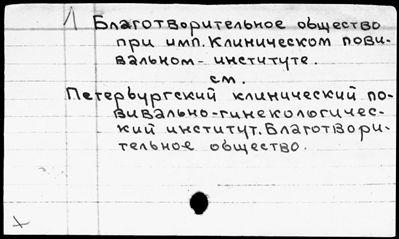 Л Благотворительное общество
при имп. Клиническом пови-
вальном - институте.
см.
Петербургский клинический по-
вивально-гинекологичес-
кий институт. Благотвори-
тельное общество.